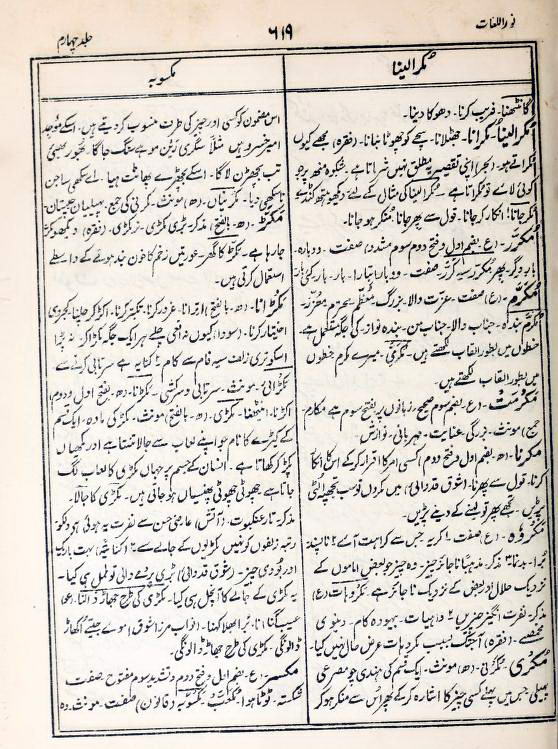 نور اللغات
۶۱۹
جلد چہارم
مُکرالینا
مکسوبہ
گانٹھنا۔ فریب کرنا۔ دھوکا دینا۔
مُکرالینا۔ مُکرانا۔ جھٹلانا۔ سچے کو جھوٹا بنانا۔ (فقرہ) مجھے کیوں
مُکراتے ہو۔ اپنی تقصیر پہ مطلق نہیں شرماتا ہے۔ شکوہ منھ پر جو
کوئی لائے تو مکراتا ہے۔ مُکرالینا کی مثال کے لئے دیکھو
مُکرجانا۔ انکار کر جانا۔ قول سے پھر جانا۔ منکر ہو جانا۔
مُکرّر۔ (ع۔ بضم اول و فتح دوم سوم مشدد) صفت۔ دوبارہ
بار دیگر۔ پھر۔ مُکرّر سہ کرّر۔ صفت۔ دوبارا تبارا۔ بار بار۔ کئی بار
مُکرّم۔ (ع) صفت۔ عزت والا۔ بزرگ۔ معظّم۔ محترم۔ معزّز۔
مُکرّم بندہ۔ جناب والا۔ جناب من۔ بندہ نواز۔ کی جگہ مستعمل ہے۔
خطوں میں بطور القاب لکھتے ہیں۔ مُکرّمی۔ میرے مکرم خطوں
میں بطور القاب لکھتے ہیں۔
مکرمت۔ (ع۔ بضم سوم صحیح۔ زبانوں پر بفتح سوم ہے مکارم
جمع) مونث۔ بزرگی۔ عنایت۔ مہربانی۔ نوازش۔
مکرنا۔ (ھ۔ بضم اول و فتح دوم) کسی امر کا اقرار کر کے اس کا انکار
کرنا۔ قول سے پھرنا۔ (شوق قدوائی) میں مکروں تو سب کچھ
پڑیں۔ تجھے پھر قولنے کے دینے پڑیں۔
مکروہ۔ (ع) صفت ۱ کریہ۔ جس سے کراہت آئے ۲ ناپسند
بُرا۔ بدنما ۳ مذکر۔ مذہباً ناجائز چیز۔ وہ چیز جو بعض اماموں کے
نزدیک حلال اور بعض کے نزدیک ناجائز ہے۔ مکروہات (ع)
مذکر۔ نفرت انگیز چیزیں ۲ واہیات۔ بیہودہ کام۔ دنیوی
مخمصے۔ (فقرہ) آجتک بسبب مکروہات عرض حال نہیں کیا۔
مُکری۔ مُکرنی۔ (ھ) مونث۔ ایک قسم کی ہندی جو مصرعی
پہیلی جس میں پہلے کسی چیز کا اشارہ کر کے پھر اُس سے منکر ہو کر
اس مضمون کو کسی اور چیز کی طرف منسوب کر دیتے ہیں۔ اسکے موجد
امیر خسرو ہیں مثلاً سگری رین موہے سنگ جاگا۔ بھور بھئی
تب بچھڑن لاگا۔ اسکے بچھڑے پھاٹت ہیا۔ اے سکھی ساجن
نا سکھی دیا۔ مُکریاں۔ (ھ) مونث۔ مُکرنی کی جمع۔ پہیلیاں۔ چیستان۔
مکڑ۔ (ھ۔ بالفتح) مذکر۔ بڑی مکڑی۔ نر مکڑی۔ (فقرہ) دیکھو مکڑ
چل رہا ہے۔ مکڑ کا گھر۔ عورتیں زخم کا خون بند ہونے کے واسطے
استعمال کرتی ہیں۔
مکڑانا۔ (ھ۔ بالفتح) اِترانا۔ غرور کرنا۔ تکبر کرنا۔ اکڑ کر چلنا۔ کجروی
اختیار کرنا۔ (سودا) کیوں نہ افعی چلے ہر ایک جگہ مکڑا کر۔
سکونری زلف سیہ فام سے کام ۲ کنایہ ہے سرتابی کرنے سے
مکڑائی۔ مونث۔ سرتابی و سرکشی۔ مکڑنا۔ (ھ۔ بفتح اول و دوم)
اکڑنا۔ اینٹھنا۔ مکڑی۔ (ھ۔ بالفتح) مونث۔ مکڑی کی مادہ۔ ایک قسم
کے کیڑے کا نام جو اپنے لعاب سے جالا تنتا ہے اور مکھیاں
پکڑ کر کھاتا ہے۔ انسان کے جسم پر جہاں مکڑی کا لعاب لگ
جاتا ہے چھوٹی چھوٹی پھنسیاں ہو جاتی ہیں۔ مکڑی کا جالا۔
مذکر۔ تار عنکبوت۔ (آتش) عارضی حسن سے نفرت یہ ہوئی ہو مجکو
رتبہ زلفوں کو نہیں مکڑیوں کے جالے سے ۲ (کنایۃً) بہت باریک
اور بُودی چیز۔ (شوق قدوائی) تیری پردے والی تو مل ہی گیا۔
یہ مکڑی کے جالے کا آنچل ہی کیا۔ مکڑی کی طرح جھاڑ ڈالنا۔ (عو)
عیب گننا۔ بُرا بھلا کہنا۔ (نواب مرزا شوق) موے جیتے اکھاڑ
ڈالونگی۔ مکڑی کی طرح جھاڑ ڈالونگی۔
مکسر۔ (ع۔ بضم اول و فتح دوم و تشدید سوم مفتوح۔ صفت
شکستہ۔ ٹوٹا ہوا۔ مکسوبہ (قانون) صفت۔ مونث۔ وہ